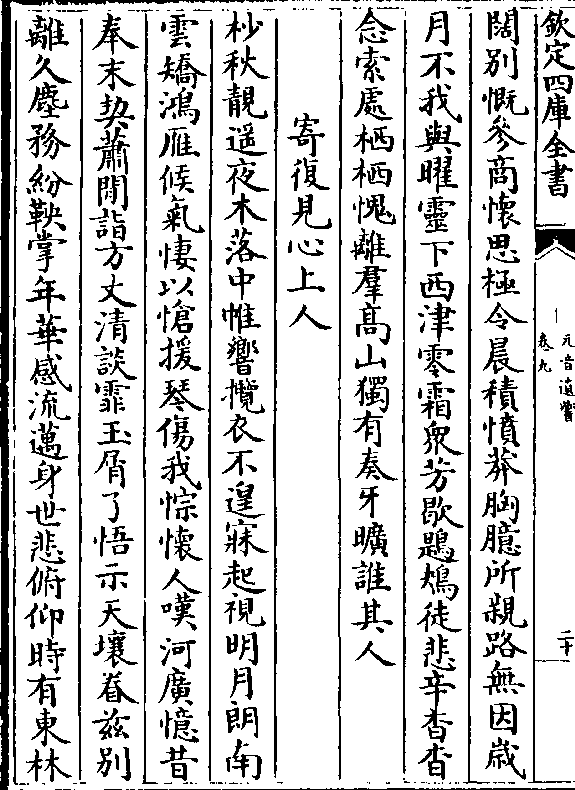 欽定四庫全書
元音遺響
卷九
二十
闊別慨參商懷思極令晨積憤莽胸臆所親路無因歲
月不我與曜靈下西津零霜衆芳歇鶗鴂徒悲辛杳杳
念索處栖栖愧離羣高山獨有奏牙曠誰其人
寄復見心上人
杪秋靚遥夜木落中帷響攬衣不遑寐起視明月朗南
雲矯鴻雁候氣悽以愴援琴傷我悰懷人嘆河廣憶昔
奉末契蕭閒詣方丈清談霏玉屑了悟示天壤眷兹別
離久塵務紛鞅掌年華感流邁身世悲俯仰時有東林